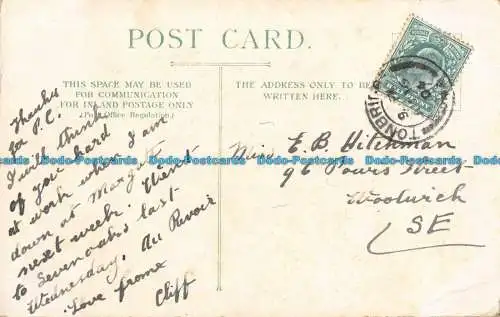 POST CARD.
THIS SPACE MAY BE USED
FOR COMMUNICATION
FOR INLAND POSTAGE ONLY
(Post Office Regulation)
THE ADDRESS ONLY TO BE
WRITTEN HERE.
Thanks
for P.C.
I will think
of you hard
at work when I am
down at Margate
next week. Went
to Sevenoaks last
Wednesday. Au Revoir
Love from
Cliff
TONBRI
Miss E. B. Hitchman
96 Powis Street
Woolwich
SE